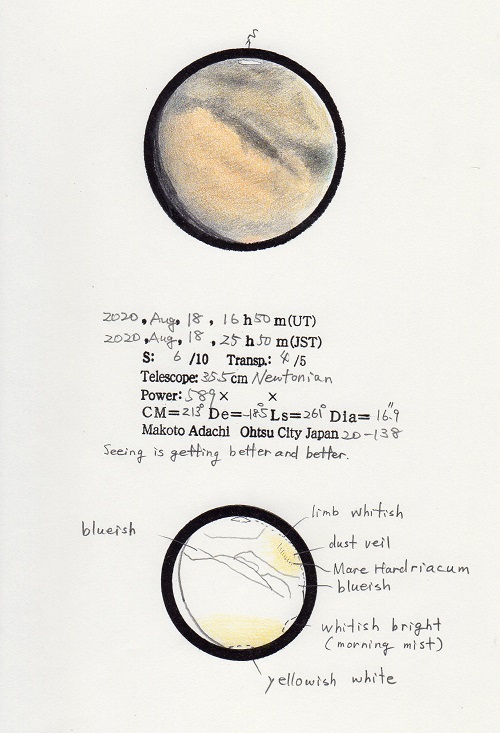 2020, Aug, 18, 16h50m(UT)
2020, Aug, 18, 25h50m(JST)
S: 6 /10 Transp.: 4 /5
Telescope: 35.5cm Newtonian
Power: 589× ×
CM=213° De=-18.5 Ls=261° Dia= 16".9
Makoto Adachi Ohtsu City Japan 20-138
Seeing is getting better and better.
limb whitish
blueish
dust veil
Mare Hardriacum
blueish
whitish bright
(morning mist)
yellowish white